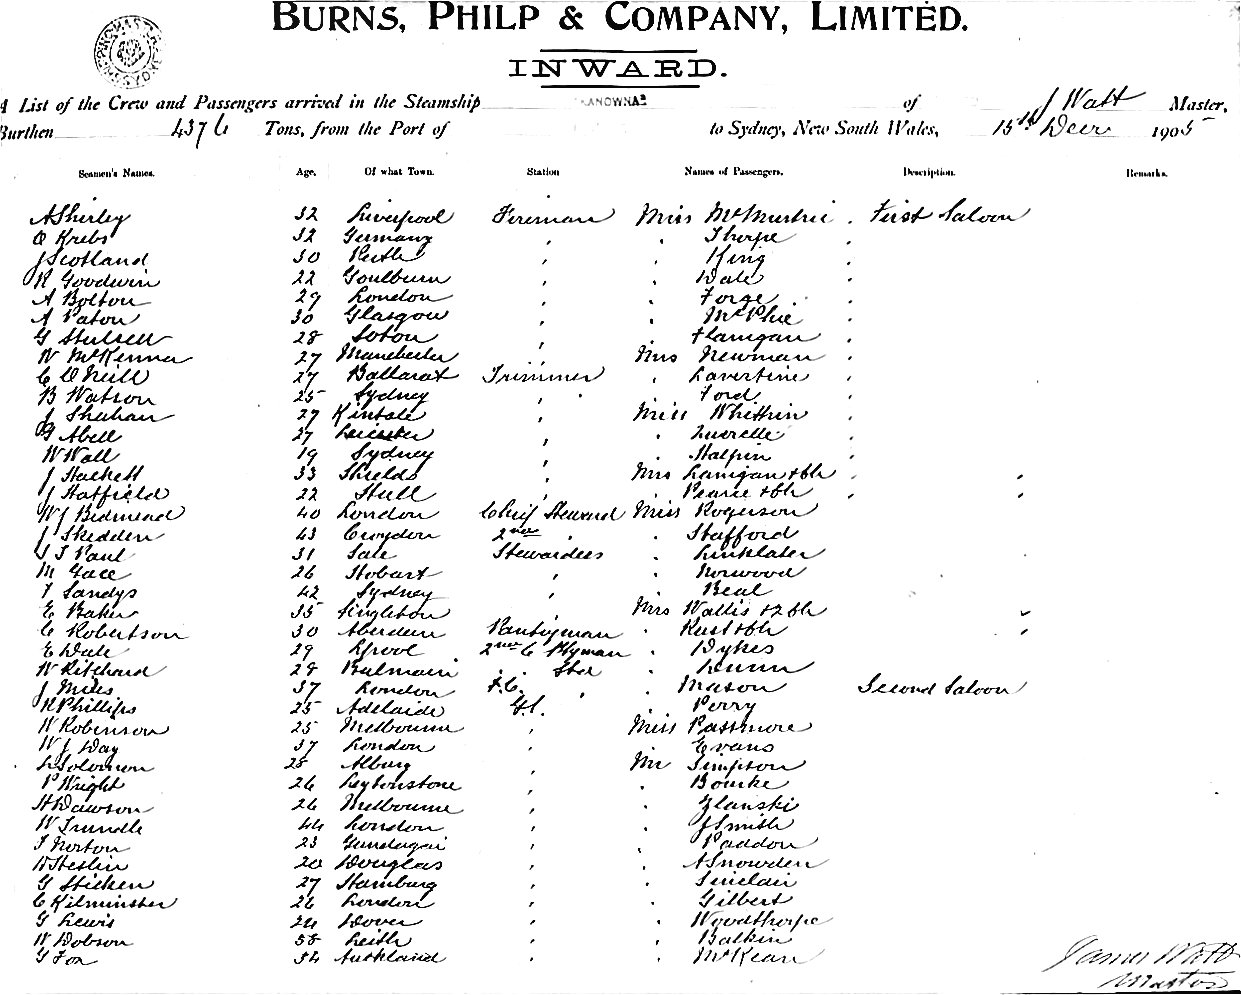 BURNS, PHILP & COMPANY, LIMITED.
INWARD.
A List of the Crew and Passengers arrived in the Steamship KANOWNA of J Watt Master,
Burthen 4376 Tons, from the Port of to Sydney, New South Wales, 15th Decr 1905
Seamen's Names. Age. Of what Town. Station Names of Passengers. Description. Remarks.
A Shirley 32 Liverpool Fireman Miss McMurtrie . First Saloon
O Krebs 32 Germany , . Thorpe ,
J Scotland 30 Perth , . King ,
R Goodwin 22 Goulburn , . Dale ,
A Bolton 29 London , . Forge ,
A Paton 30 Glasgow , . McPhie ,
G Stutsell 28 Soton , . Flanigan ,
W McKenna 27 Manchester Mrs Newman ,
C O'Neill 27 Ballarat Trimmer . Lavertine ,
B Watson 25 Sydney , . Ford ,
J Shehan 27 Kinsale , Miss Whittein ,
G Abell 27 Leicester , . Luirelle ,
W Wall 19 Sydney , . Halpin ,
J Hackett 33 Shields , Mrs Lanigan & ch , ,
J Hatfield 22 Hull , . Pearce & ch , ,
W J Bidmead 40 London Chief Steward Miss Rogerson
J Skedden 43 Croydon 2nd , . Stafford
T Paul 31 Sale Stewardess . Linklater
M Gace 26 Hobart , . Norwood
T Sandys 42 Sydney , . Beal
E Baker 35 Singleton , Mrs Wallis & 2 ch ,
C Robertson 30 Aberdeen Pantryman . Rust & ch ,
E Dale 29 Lpool 2nd C P'tyman . Dykes
W Ritchard 28 Balmain . Std . Dunn
J Miles 37 London F.C. , . Mason Second Saloon
R Phillips 25 Adelaide Gl. . Perry
W Robinson 25 Melbourne , Miss Passmore
W J Day 37 London , . Evans
L Solomon 28 Albury , Mr Simpson
P Wright 26 Leytonstone , . Bourke
H Dawson 26 Melbourne , . Glanski
W Trundle 44 London , . J Smith
T Norton 23 Gundagai , . Paddon
W Heslin 20 Douglas , . A Snowden
G Sticken 27 Hamburg , . Sinclair
C Kilminster 26 London , . Gilbert
G Lewis 24 Dover , . Woodthorpe
W Dobson 58 Leith , . Balkin
G Fox 54 Auckland , . McKean
James Watt
Master